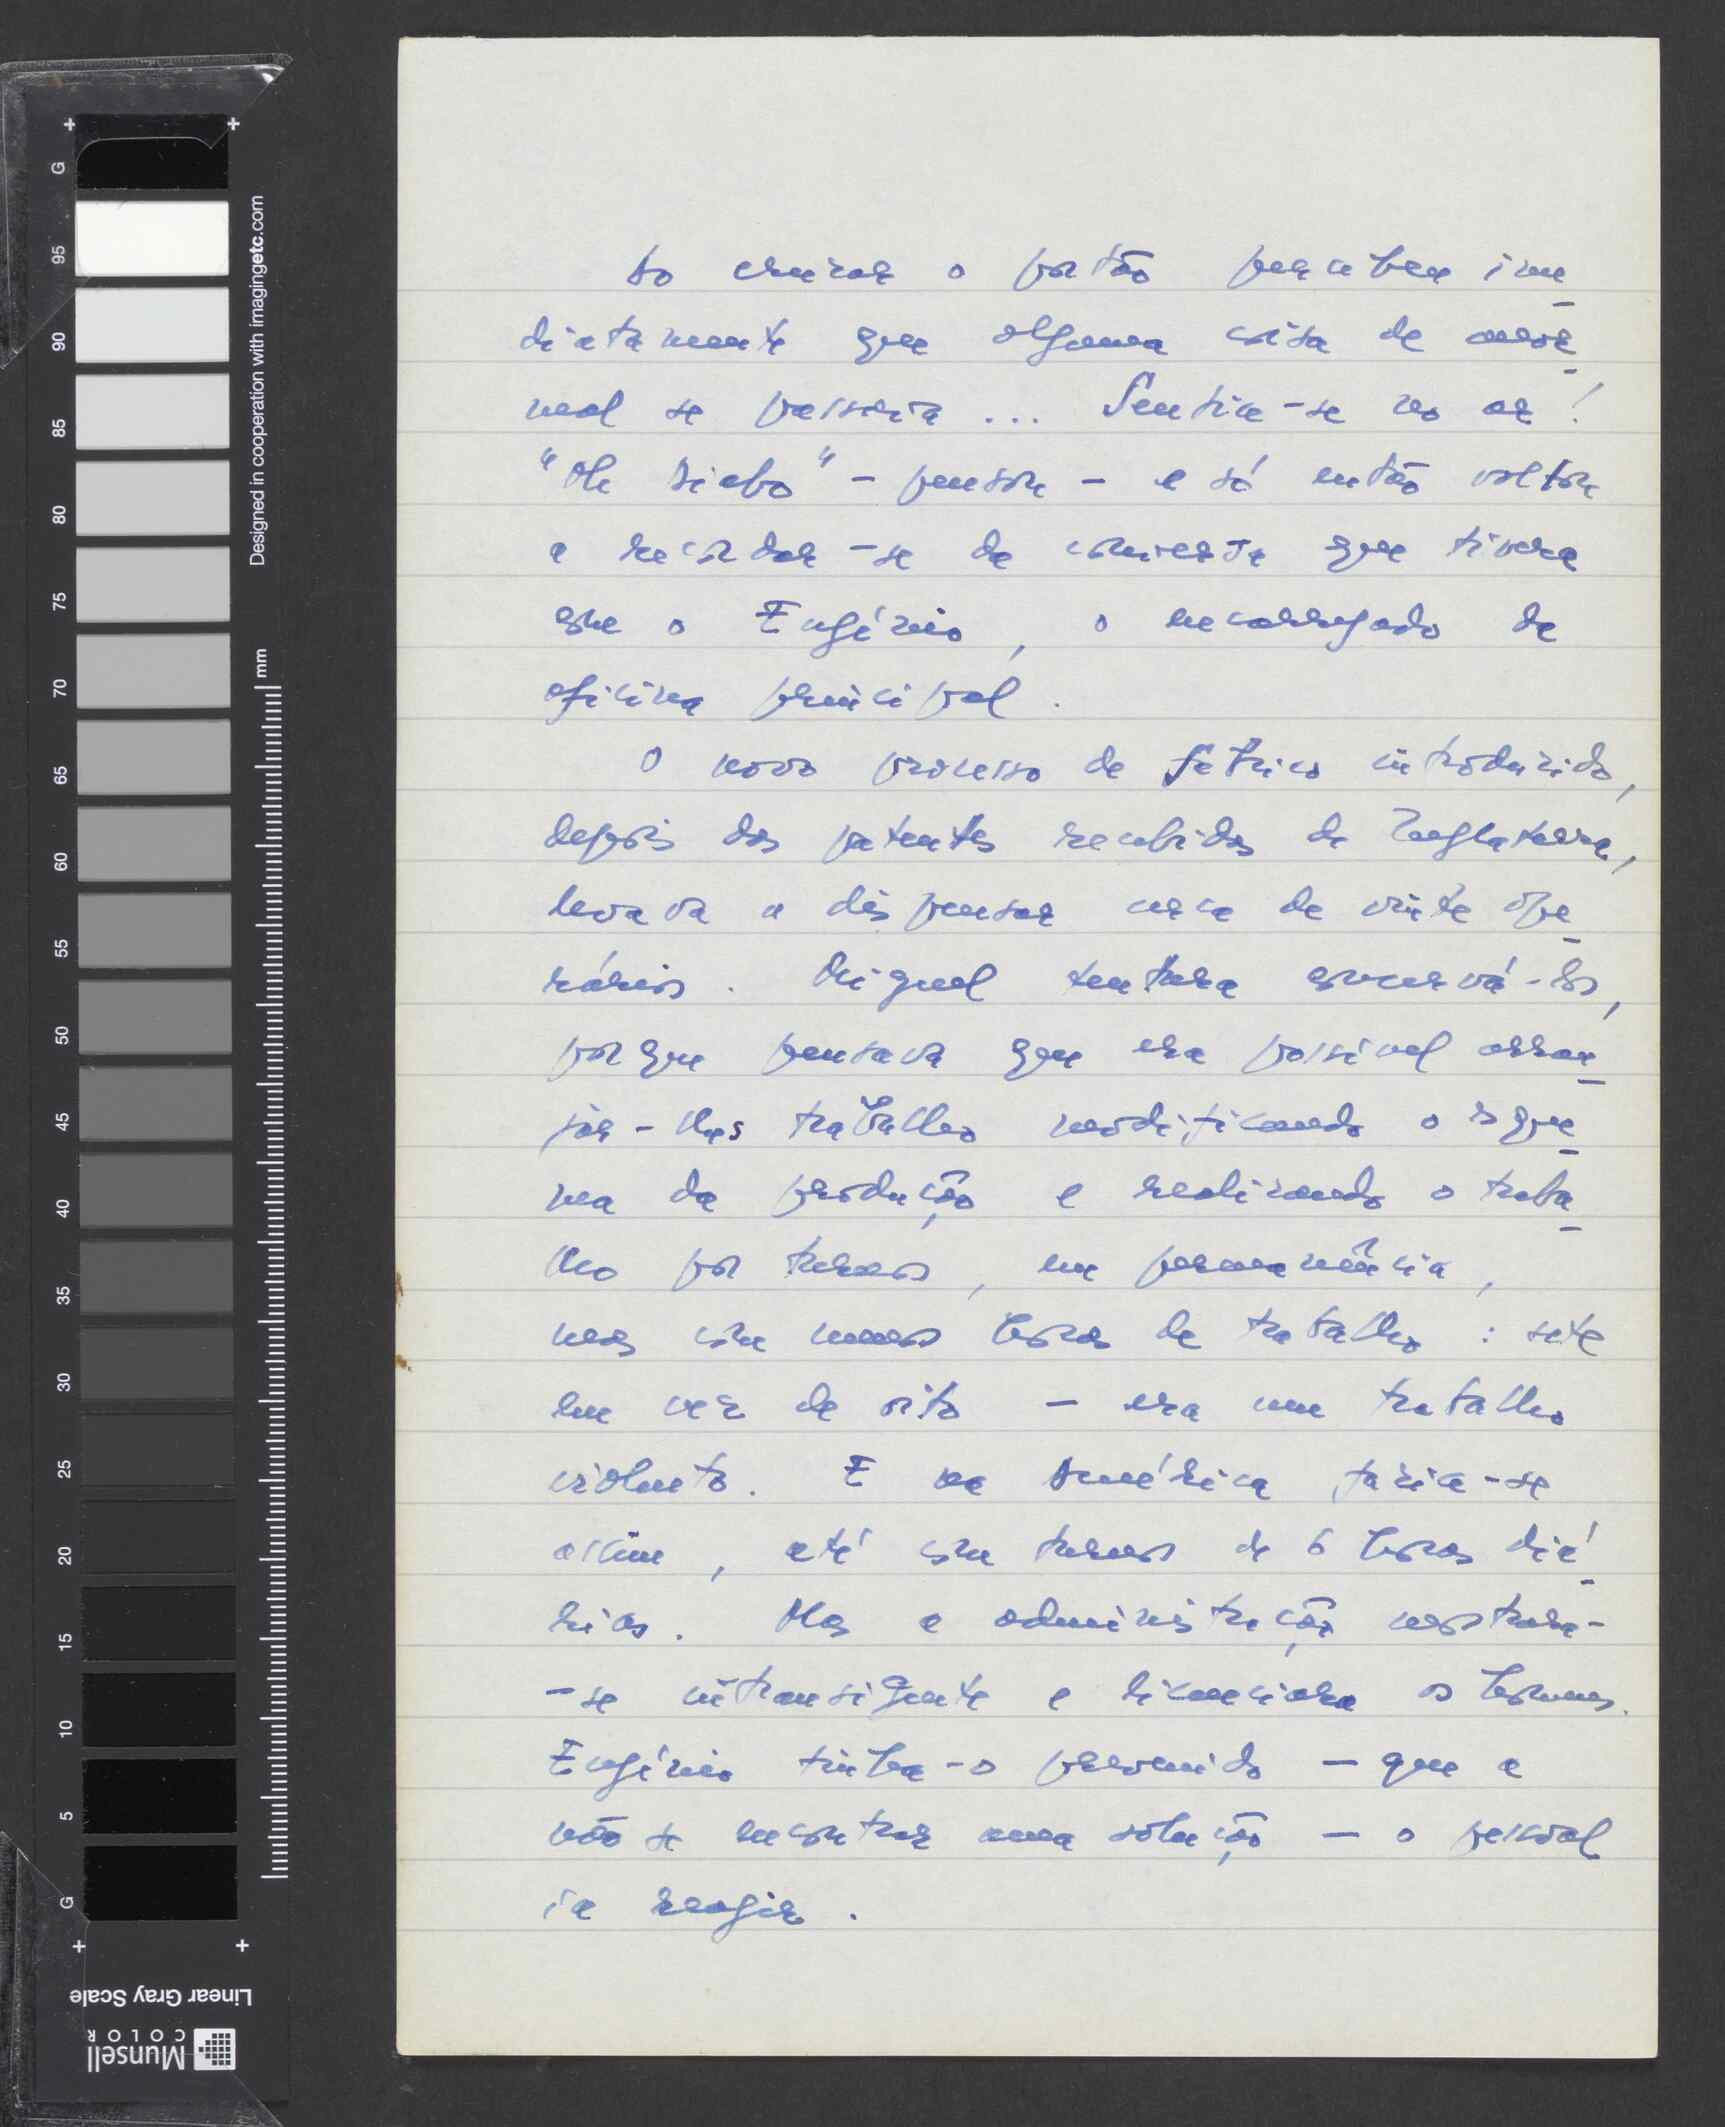 Ao cruzar o portão percebeu ime
diatamente que alguma coisa de anor
mal se passaria ... Sentia-se no ar!
"Oh Diabo" - pensou - e só então voltou
a recordar-se da conversa que tivera
com o Eugénio, o encarregado da
oficina principal.
O novo processo de fabrico introduzido,
depois das patentes recebidas da Inglaterra,
levava a dispensar cerca de vinte ope
rários. Miguel tentara conservá-los,
porque pensava que era possível arran
jar-lhes trabalho modificando o esque
ma da produção e realizando o traba
lho por turnos, em permanência,
mas com menos horas de trabalho : sete
em vez de oito - era um trabalho
violento. E na América fazia-se
assim, até com turnos de 6 horas diá
rias. Mas a administração mostrara-
-se intransigente e licenciara os homens.
Eugénio tinha-o prevenido - que a
não se encontrar uma solução - o pessoal
ia reagir.
G 95 90 85 80 75 70 65 60 55 50 45 40 35 30 25 20 15 10 5 G
Designed in cooperation with imagingetc.com
mm
Linear Gray Scale
Munsell
COLOR